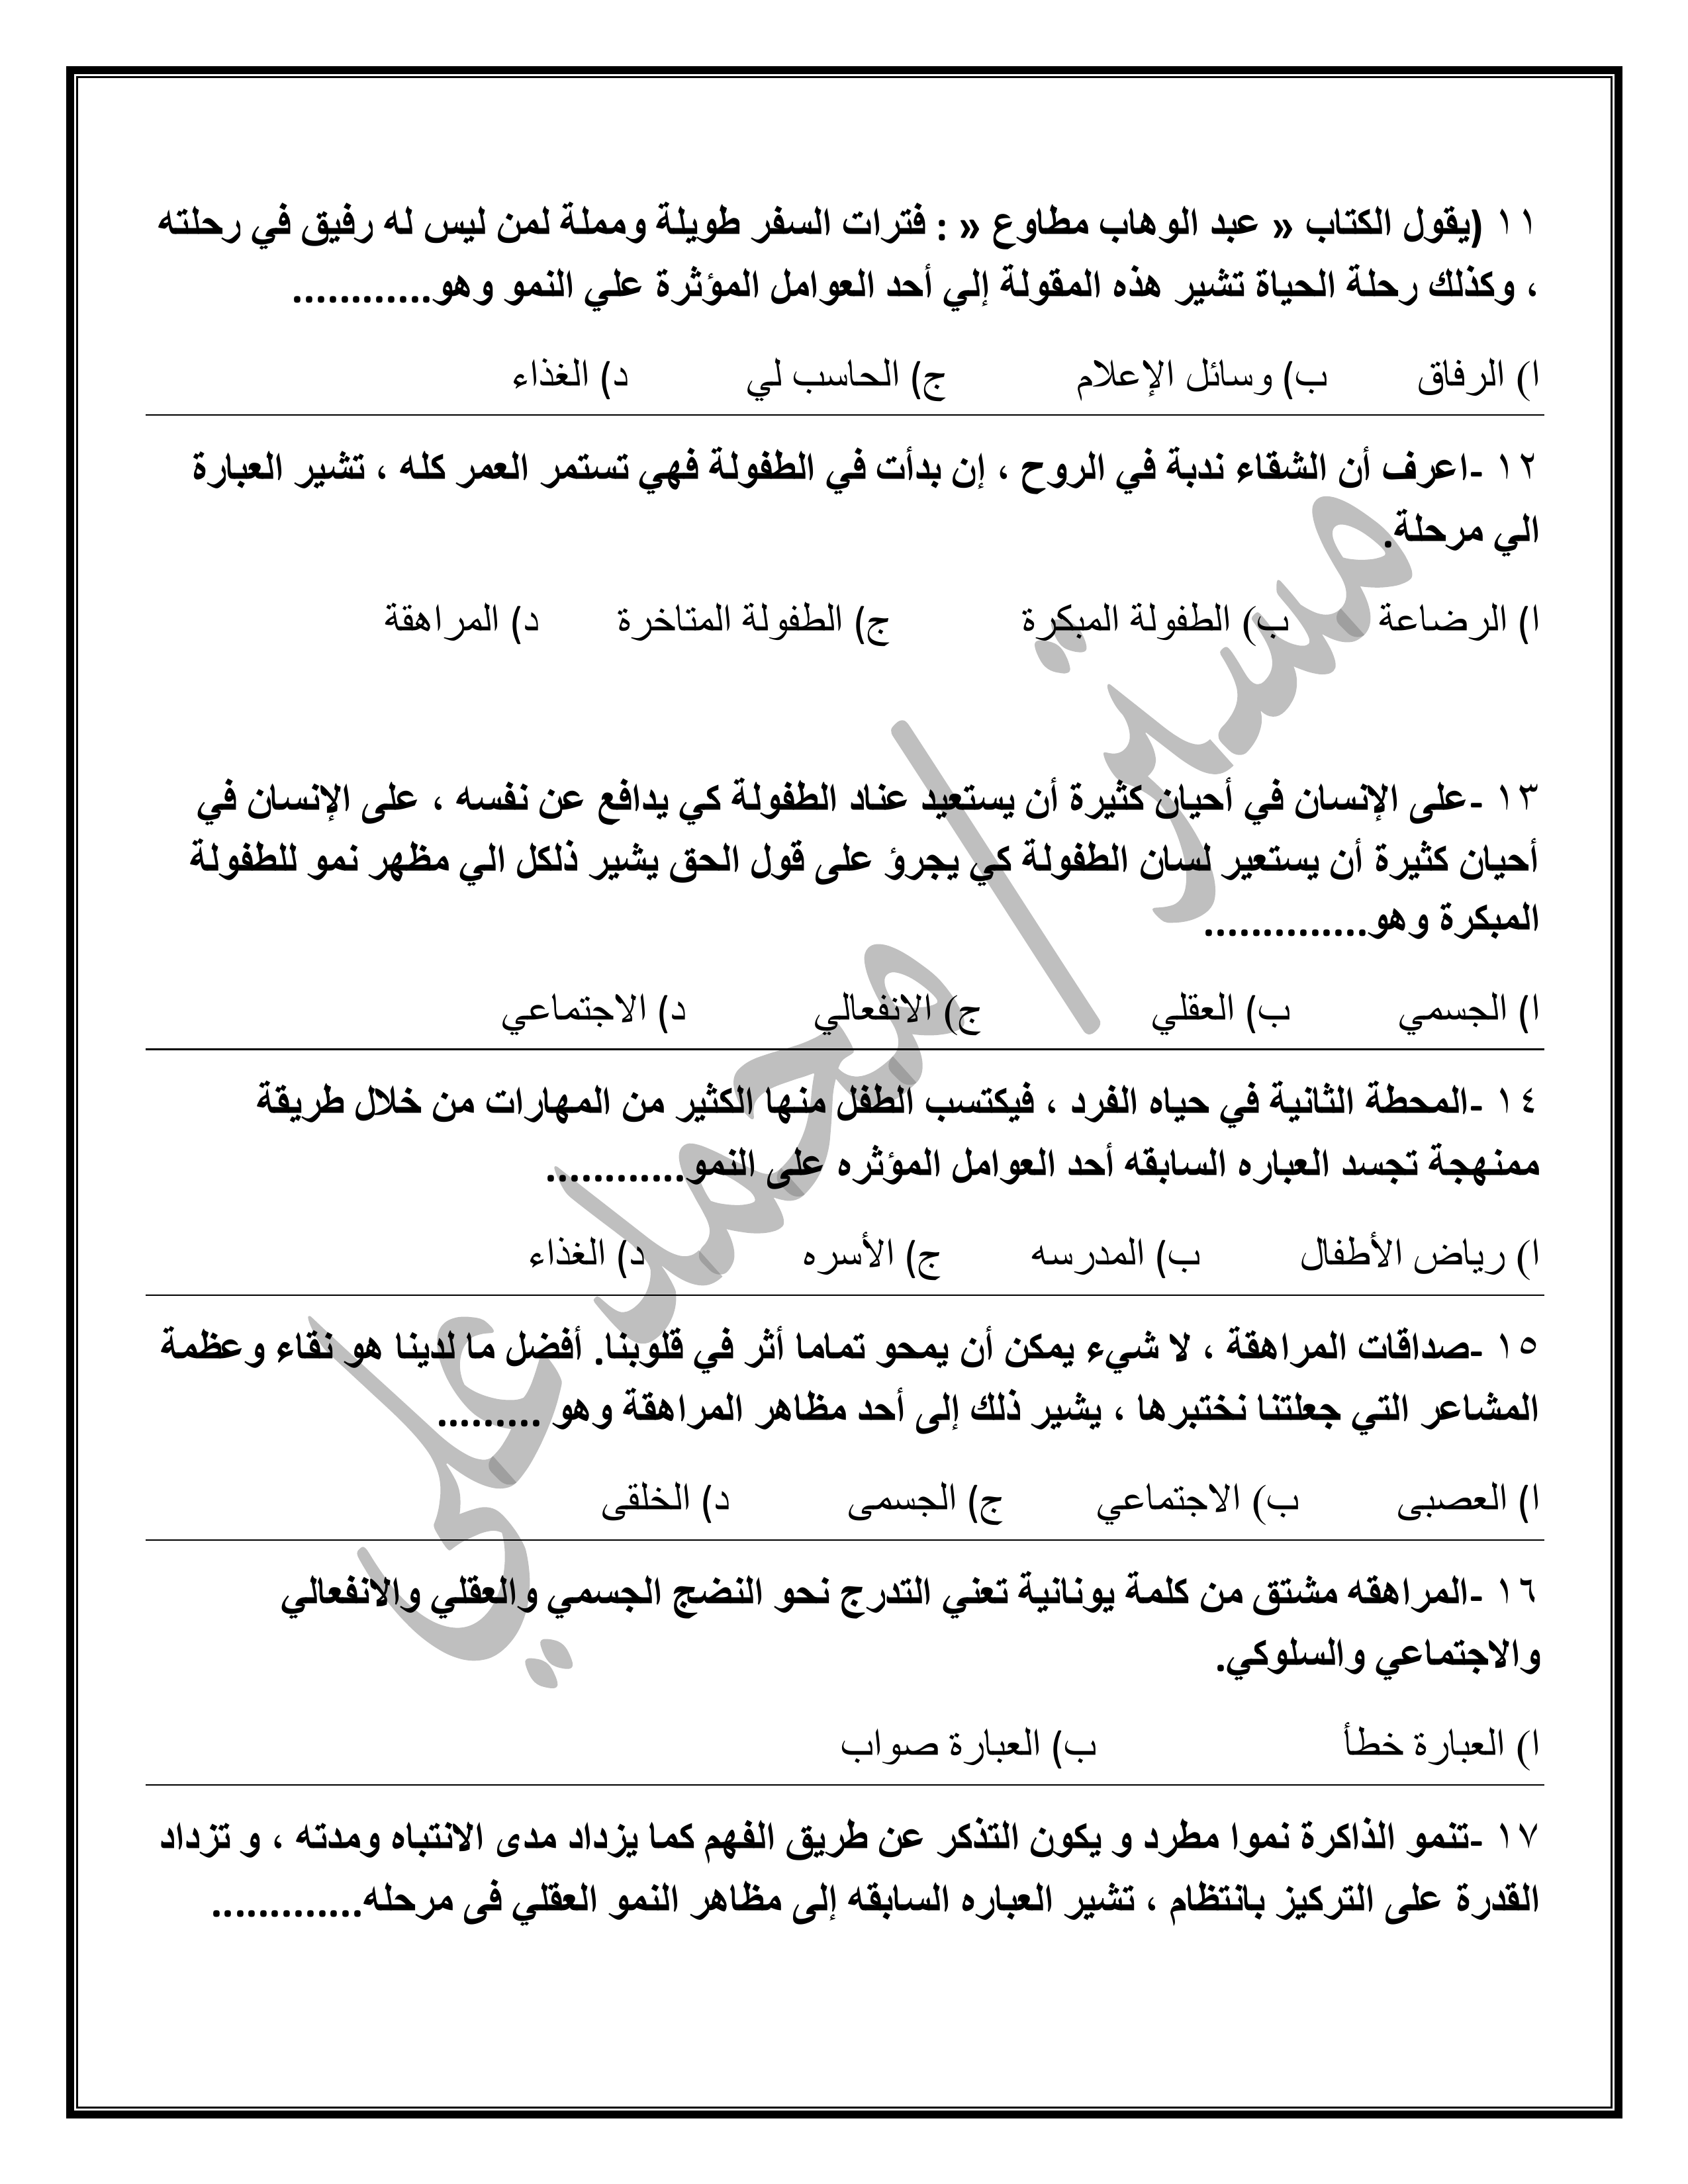 ١١ (يقول الكتاب « عبد الوهاب مطاوع « : فترات السفر طويلة ومملة لمن ليس له رفيق في رحلته
، وكذلك رحلة الحياة تشير هذه المقولة إلي أحد العوامل المؤثرة علي النمو وهو............
ا) الرفاق ب) وسائل الإعلام ج) الحاسب لي د) الغذاء
١٢ -اعرف أن الشقاء ندبة في الروح ، إن بدأت في الطفولة فهي تستمر العمر كله ، تشير العبارة
الي مرحلة.
ا) الرضاعة ب) الطفولة المبكرة ج) الطفولة المتاخرة د) المراهقة
١٣ -على الإنسان في أحيان كثيرة أن يستعيد عناد الطفولة كي يدافع عن نفسه ، على الإنسان في
أحيان كثيرة أن يستعير لسان الطفولة كي يجرؤ على قول الحق يشير ذلكل الي مظهر نمو للطفولة
المبكرة وهو..............
ا) الجسمي ب) العقلي ج) الانفعالي د) الاجتماعي
١٤ -المحطة الثانية في حياه الفرد ، فيكتسب الطفل منها الكثير من المهارات من خلال طريقة
ممنهجة تجسد العباره السابقه أحد العوامل المؤثره على النمو............
ا) رياض الأطفال ب) المدرسه ج) الأسره د) الغذاء
١٥ -صداقات المراهقة ، لا شيء يمكن أن يمحو تماما أثر في قلوبنا. أفضل ما لدينا هو نقاء وعظمة
المشاعر التي جعلتنا نختبرها ، يشير ذلك إلى أحد مظاهر المراهقة وهو .........
ا) العصبى ب) الاجتماعي ج) الجسمى د) الخلقى
١٦ -المراهقه مشتق من كلمة يونانية تعني التدرج نحو النضج الجسمي والعقلي والانفعالي
والاجتماعي والسلوكي.
ا) العبارة خطأ ب) العبارة صواب
١٧ -تنمو الذاكرة نموا مطرد و يكون التذكر عن طريق الفهم كما يزداد مدى الانتباه ومدته ، و تزداد
القدرة على التركيز بانتظام ، تشير العباره السابقه إلى مظاهر النمو العقلي فى مرحله.............
مستر / محمد علي